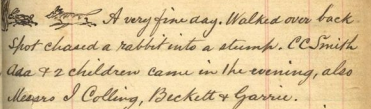 A very fine day. Walked over back
Spot chased a rabbit into a stump. CC Smith
Ada & 2 children came in the evening, also
Messrs J Colling, Beckett & Garrie.